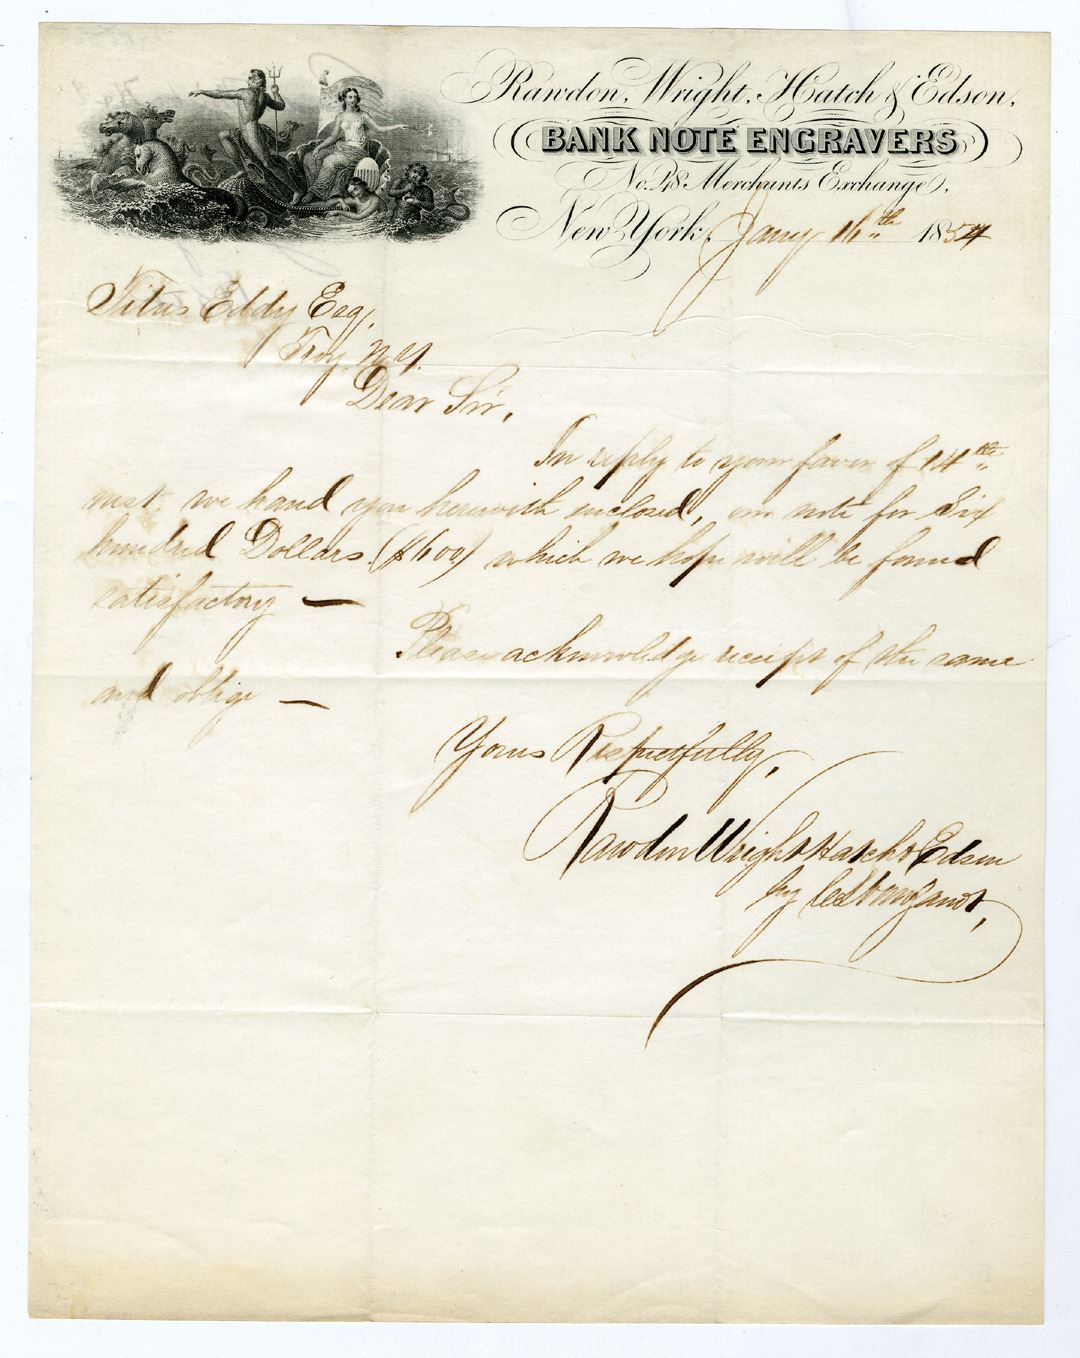 Rawdon, Wright, Hatch & Edson,
BANK NOTE ENGRAVERS
No. 48 Merchants Exchange,
New York, Jany 16th 1854
Titus Eddy Esq,
Troy, N.Y.
Dear Sir,
In reply to your favor of 14th
inst. we hand you herewith enclosed, our note for Six
hundred Dollars ($600) which we hope will be found
satisfactory —
Please acknowledge receipt of the same
and oblige —
Yours Respectfully,
Rawdon Wright Hatch & Edson
by